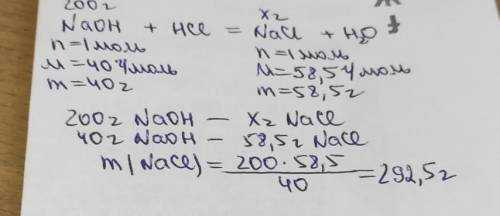 200г х г
NaOH + HCl = NaCl + H₂O
n=1моль n=1моль
M=40г/моль M=58,5г/моль
m=40г m=58,5г
200г NaOH — х г NaCl
40г NaOH — 58,5г NaCl
m(NaCl) = 200·58,5 / 40 = 292,5г